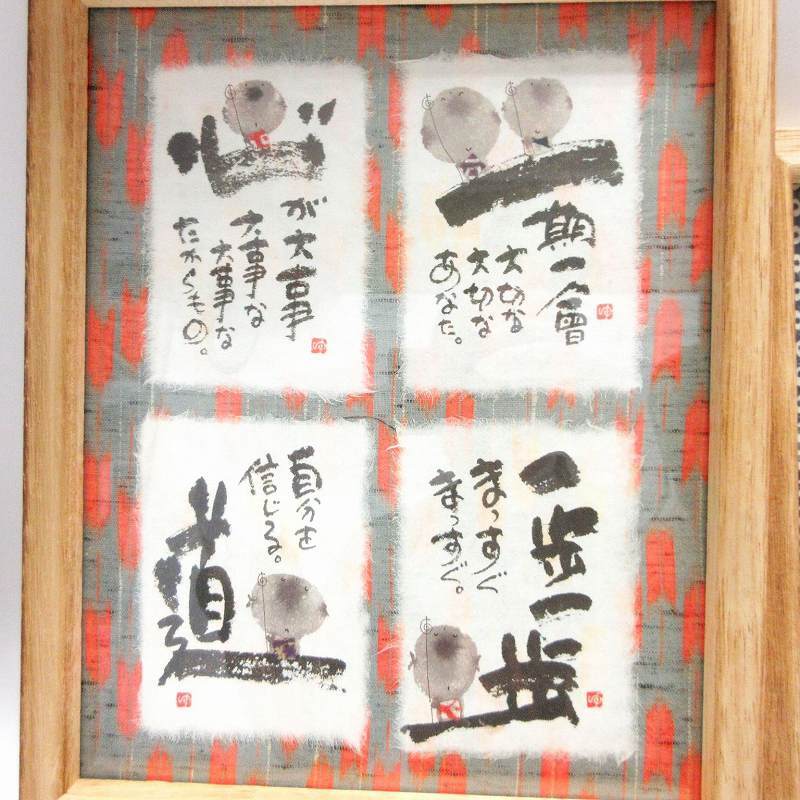 一
期一會
大切な
大切な
あなた。
心
が大事
大事な
大事な
たからもの。
一歩一歩
まっすぐ
まっすぐ。
自分を
信じる。
道